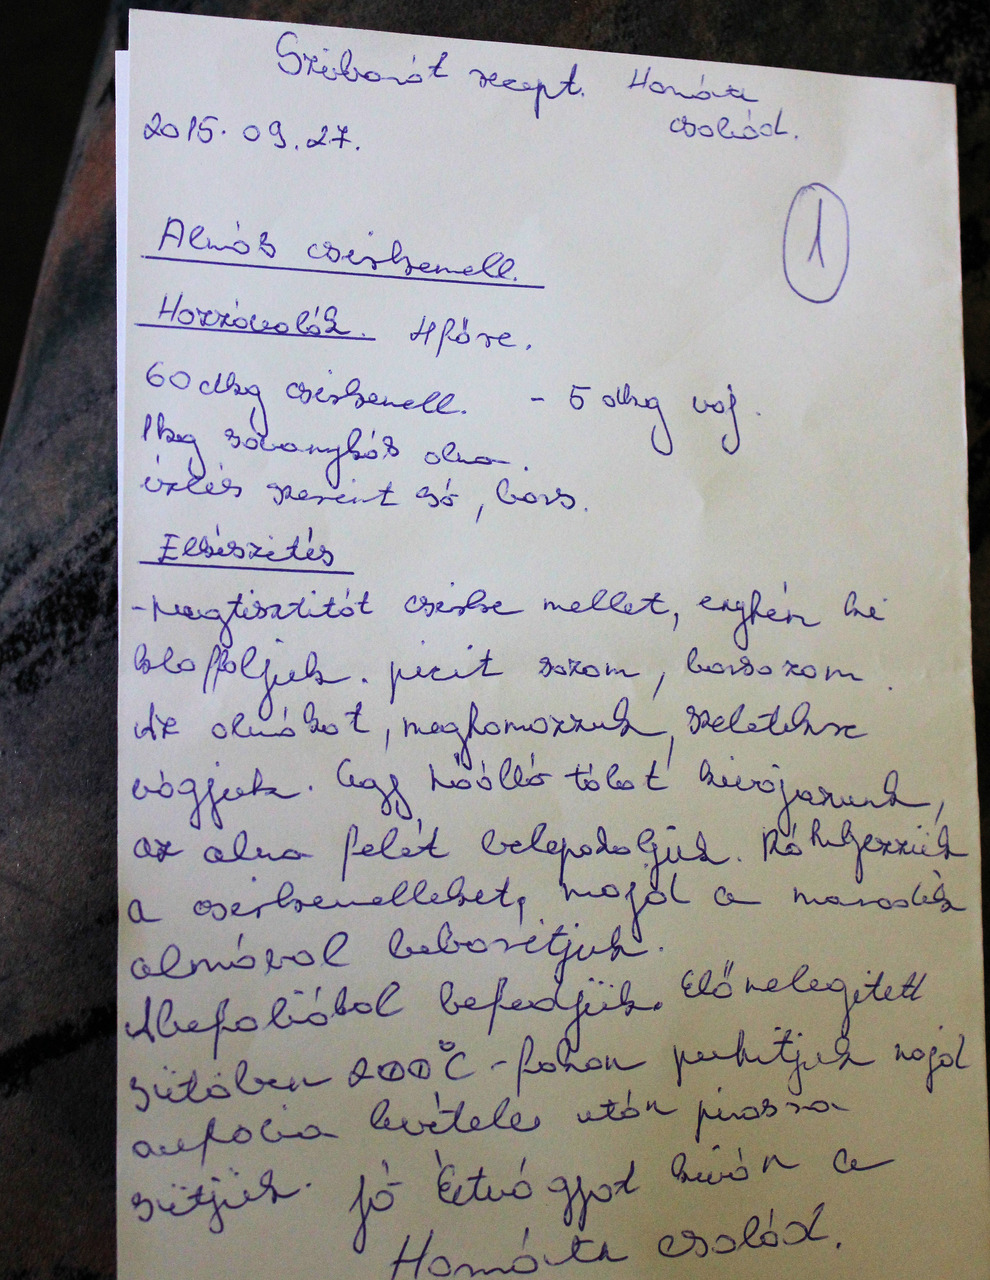 Szibarát recept. Homórta
család.
2015. 09. 27.
1
Almás csirkemell.
Hozzávalók. 4 főre.
60 dkg csirkemell. - 5 dkg vaj.
1 kg savanykás alma.
ízlés szerint só, bors.
Elkészítés
- megtisztitót csirke mellet, enyhén ki
kloffoljuk. picit sozom, borsozom.
Az almákat, meghámozzuk, szeletekre
vágjuk. Egy hőálló tálat kivajazunk,
az alma felét belepakoljuk. Rá helyezzük
a csirkemelleket, majd a maradék
almával beborítjuk.
Alufoliával befedjük. Előmelegített
sütőben 200°C-fokon puhítjuk majd
aufólia levétele után pirosra
sütjük. Jó Étvágyat kíván a
Homórta család.